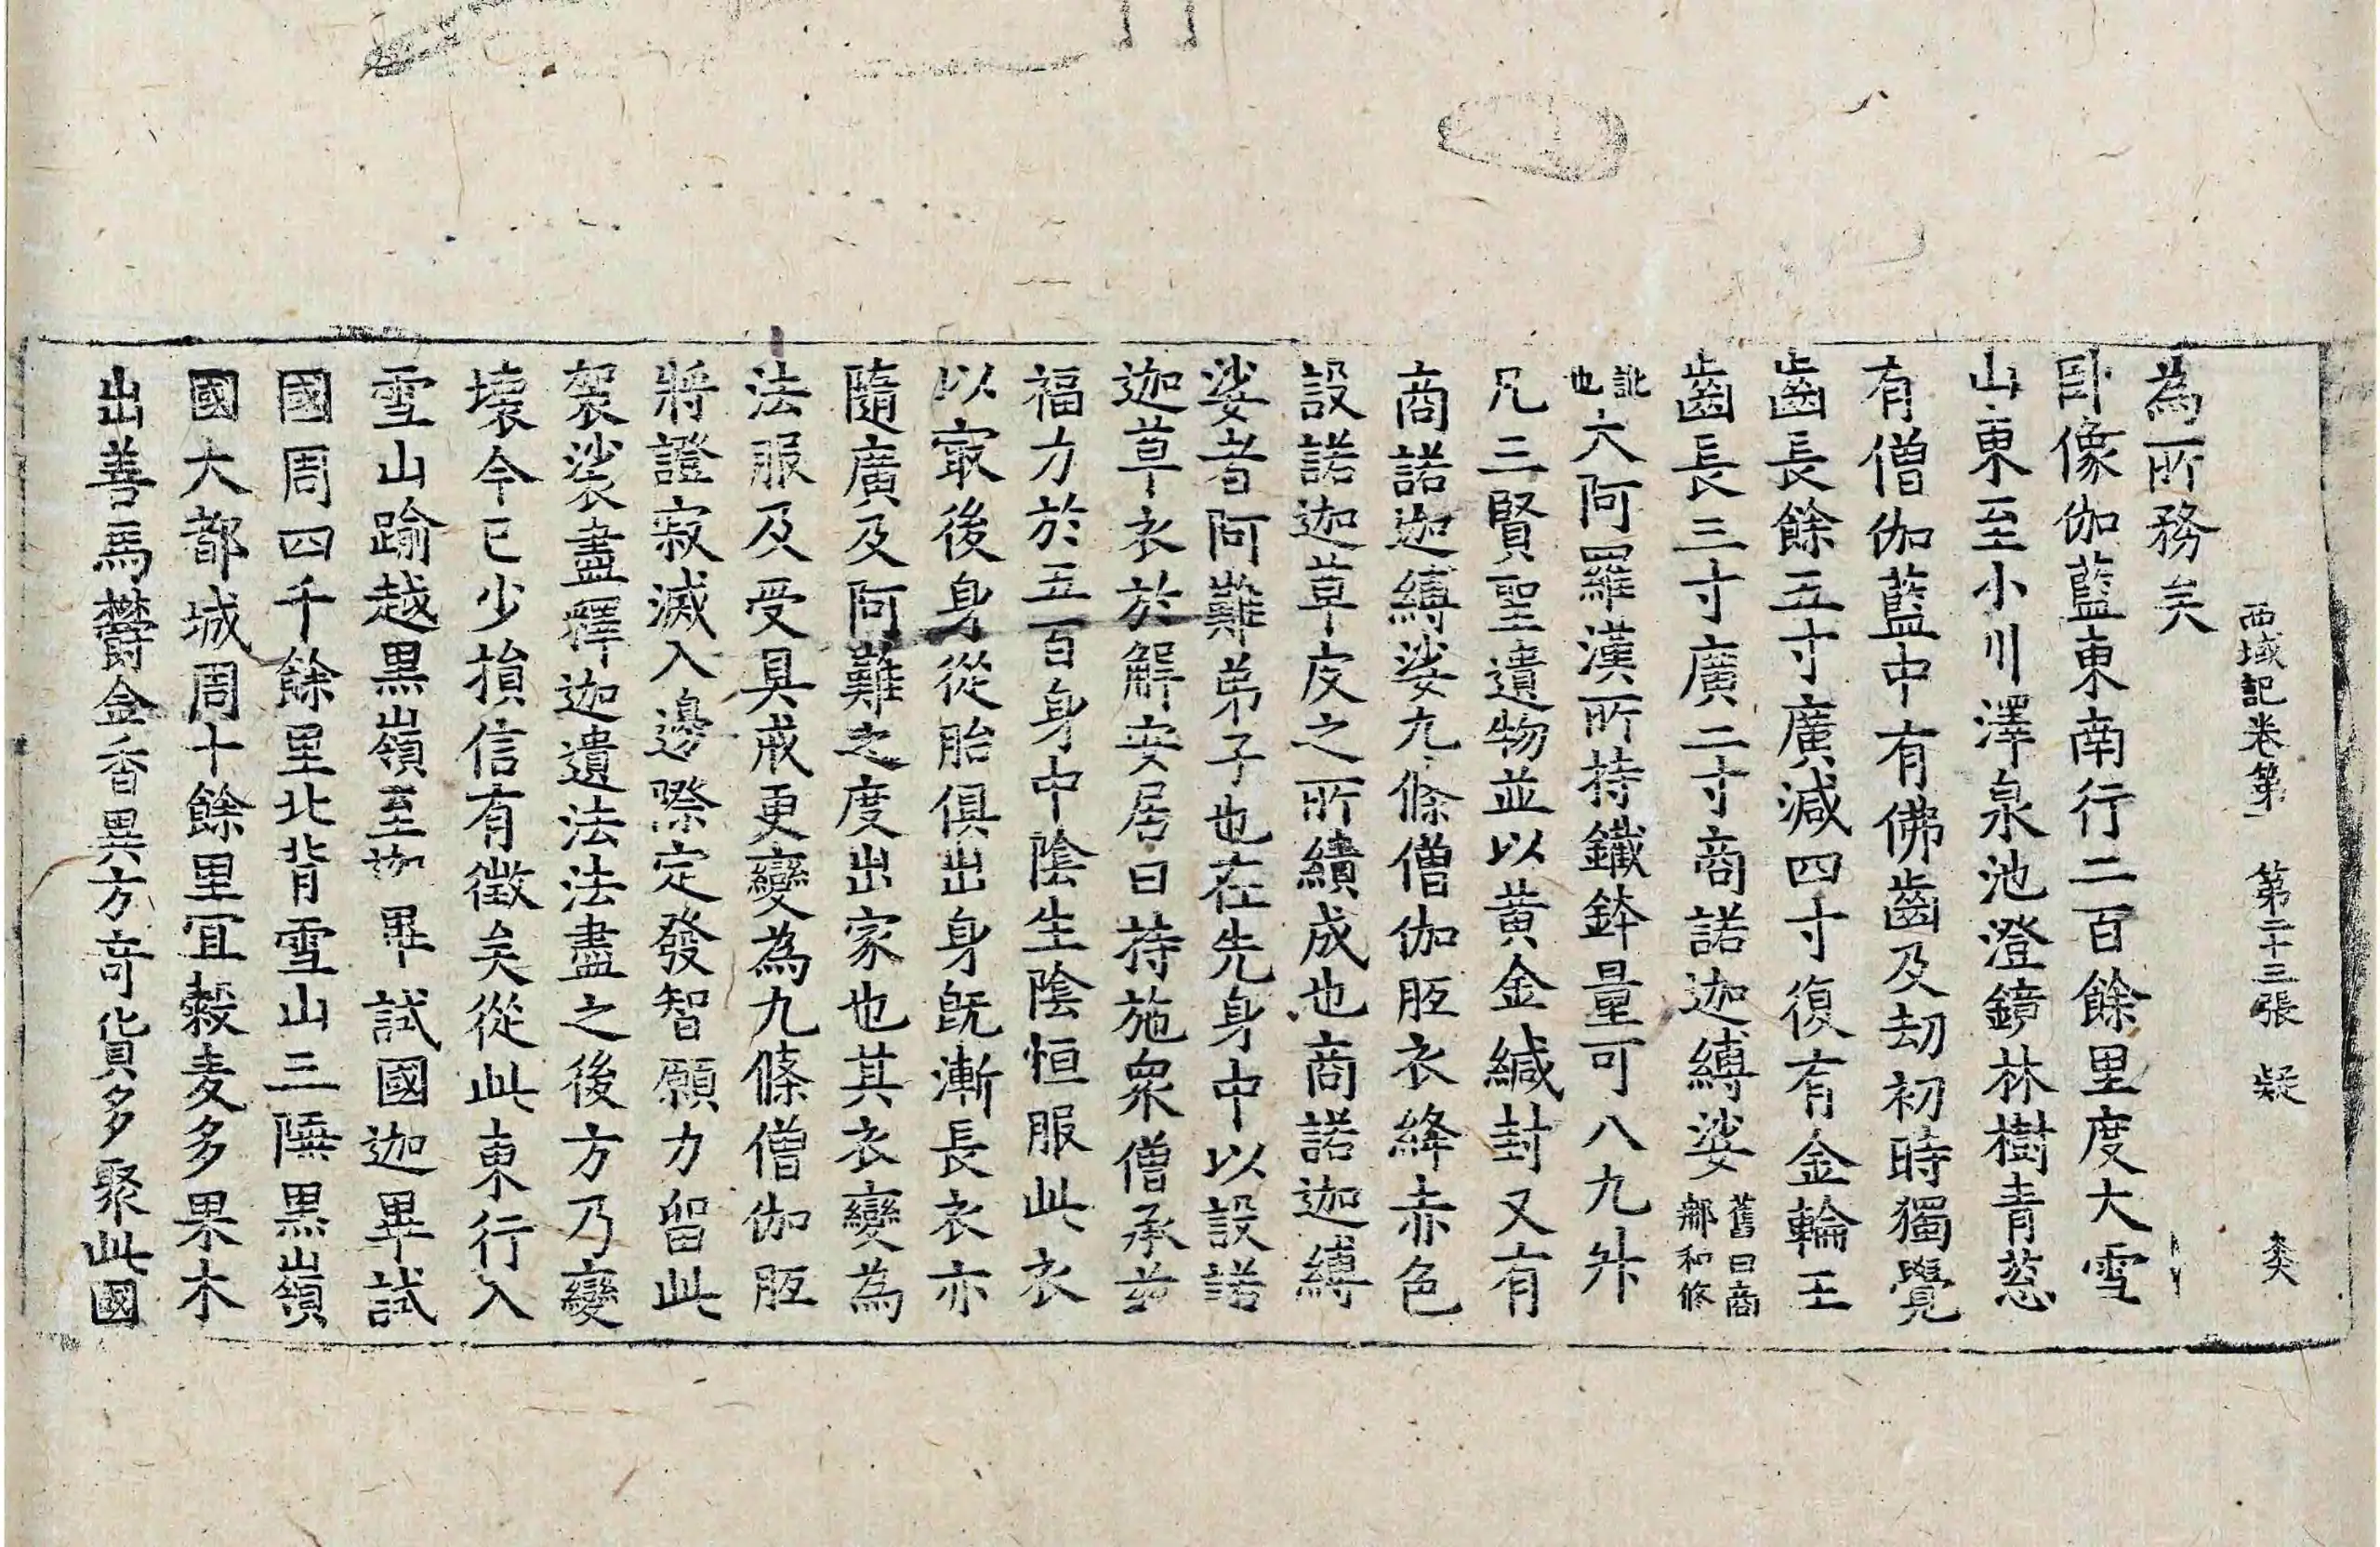 西域記卷第一 第二十三張 凝
為所務矣
卧像伽藍東南行二百餘里度大雪
山東至小川澤泉池澄鏡林樹青葱
有僧伽藍中有佛齒及劫初時獨覺
齒長餘五寸廣減四寸復有金輪王
齒長三寸廣二寸商諾迦縛娑舊曰商那和修
訛也大阿羅漢所持鐵鉢量可八九升
凡三賢聖遺物並以黃金緘封又有
商諾迦縛娑九條僧伽胝衣絳赤色
設諾迦草皮之所績成也商諾迦縛
娑者阿難弟子也在先身中以設諾
迦草衣於解安居日持施衆僧承茲
福力於五百身中陰生陰恒服此衣
以㝡後身從胎俱出身旣漸長衣亦
隨廣及阿難之度出家也其衣變為
法服及受具戒更變為九條僧伽胝
將證寂滅入邊際定發智願力留此
袈裟盡釋迦遺法法盡之後方乃變
壞今已少損信有徵矣從此東行入
雪山踰越黑嶺至迦畢試國迦畢試
國周四千餘里北背雪山三陲黑嶺
國大都城周十餘里宜穀麦多果木
出善馬欝金香異方奇貨多聚此國